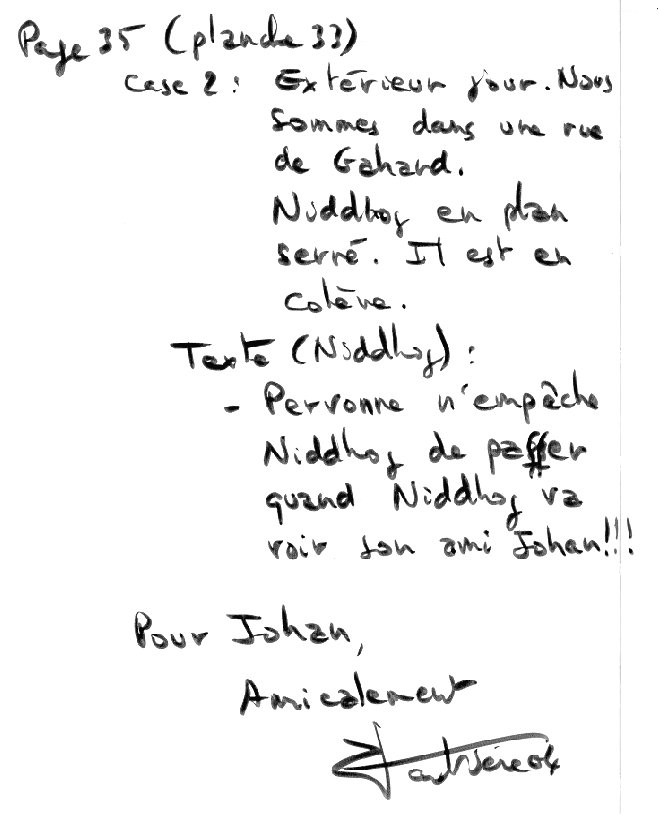 Page 35 (planche 33)
Case 2 : Extérieur jour. Nous
sommes dans une rue
de Gahard.
Niddhog en plan
serré. Il est en
colère.
Texte (Niddhog) :
- Personne n'empêche
Niddhog de passer
quand Niddhog va
voir son ami Johan!!!
Pour Johan,
Amicalement